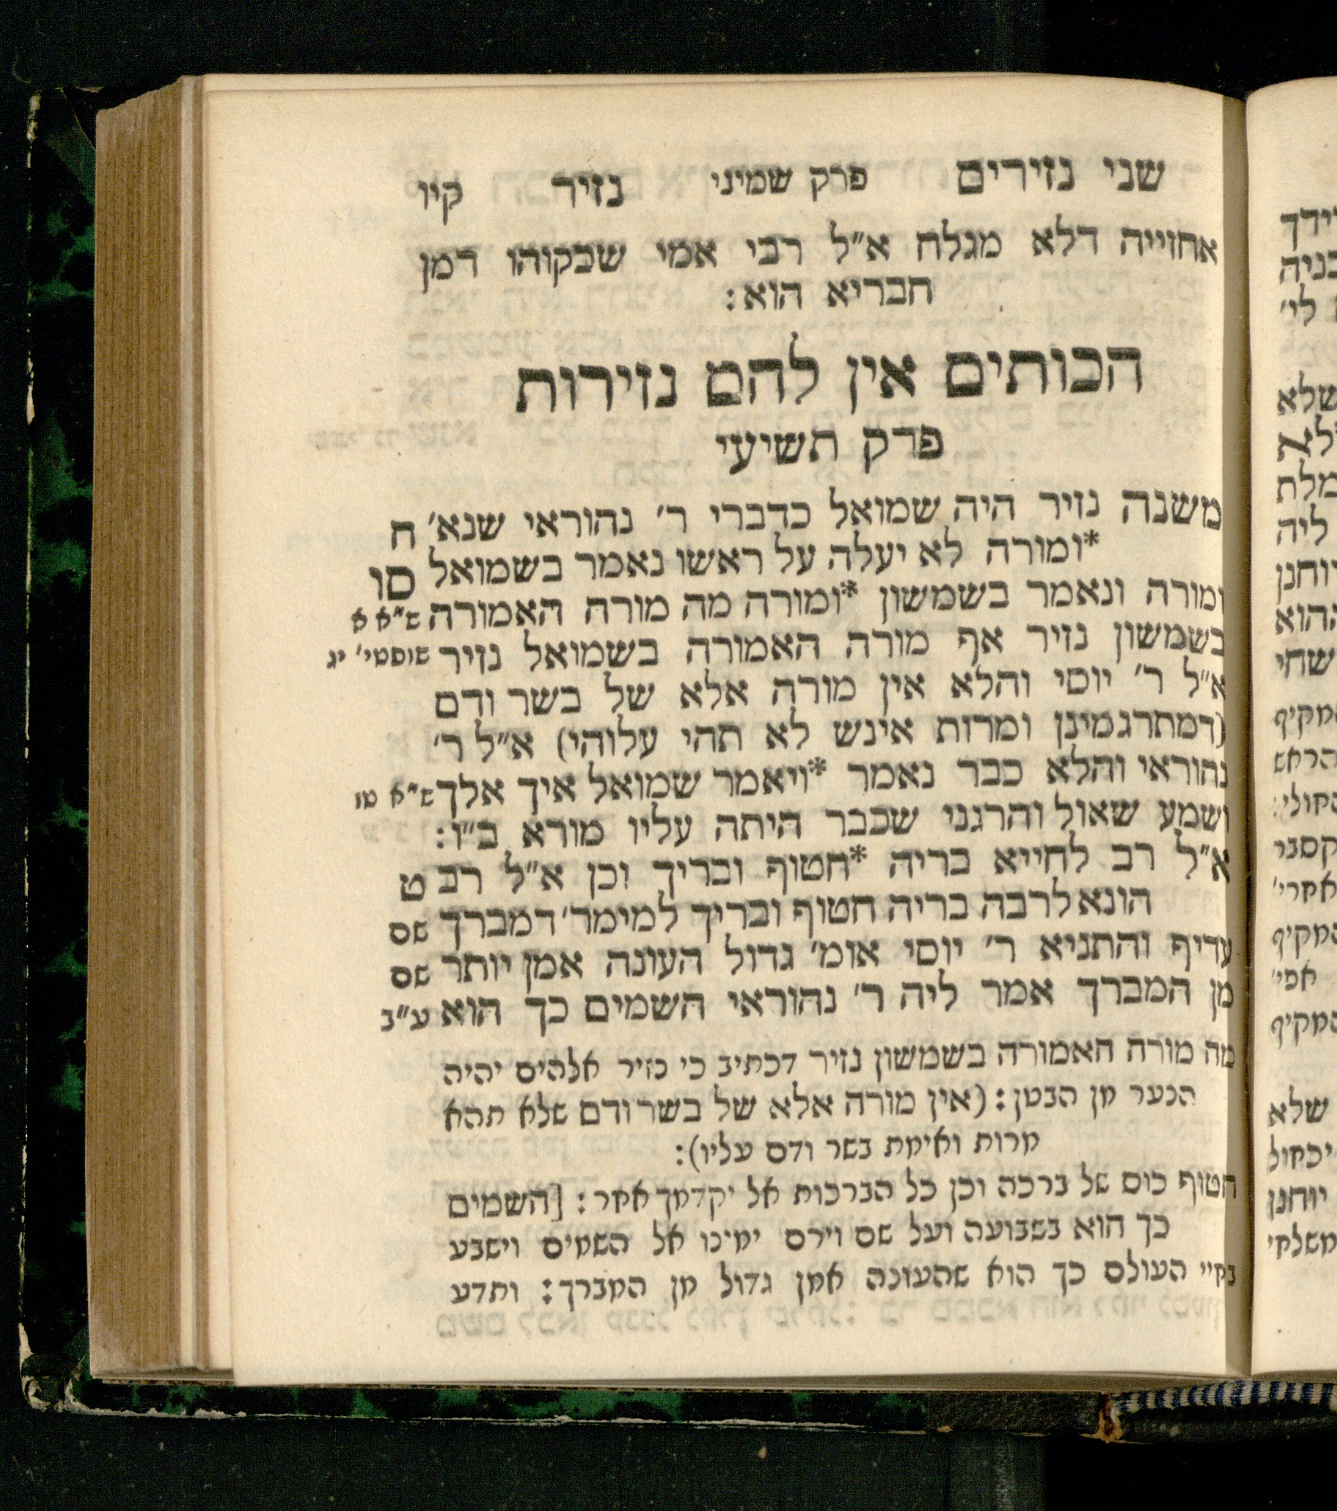 שני נזירים פרק שמיני נזיר קיו
אחוייה דלא מגלח א״ל רבי אמי שבקוהו דמן
חבריא הוא:
הכותים אין להם נזירות
פרק תשיעי
משנה נזיר היה שמואל כדברי ר׳ נהוראי שנא׳ ח
*ומורה לא יעלה על ראשו נאמר בשמואל סו
ומורה ונאמר בשמשון *ומורה מה מורה האמורה ש״א א
בשמשון נזיר אף מורה האמורה בשמואל נזיר שופטי׳ יג
א״ל ר׳ יוסי והלא אין מורה אלא של בשר ודם
(דמתרגמינן ומרות אינש לא תהי עלוהי) א״ל ר׳
נהוראי והלא כבר נאמר *ויאמר שמואל איך אלך ש״א טז
ושמע שאול והרגני שכבר היתה עליו מורא ב״ו:
א״ל רב לחייא בריה *חטוף ובריך וכן א״ל רב ט
הונא לרבה בריה חטוף ובריך למימר׳ דמברך שם
עדיף והתניא ר׳ יוסי אומ׳ גדול העונה אמן יותר שם
מן המברך אמר ליה ר׳ נהוראי השמים כך הוא ע״ב
מה מורה האמורה בשמשון נזיר דכתיב כי נזיר אלהים יהיה
הנער מן הבטן: (אין מורה אלא של בשר ודם שלא תהא
מרות ואימת בשר ודם עליו):
חטוף כוס של ברכה וכן כל הברכות אל יקדמך אחר: [השמים
כך הוא בשבועה ועל שם וירם ימינו אל השמים וישבע
בחיי העולם כך הוא שהעונה אמן גדול מן המברך: ותדע
שלא
מלת
ליה
המקיף
אפי׳
המקיף
שלא